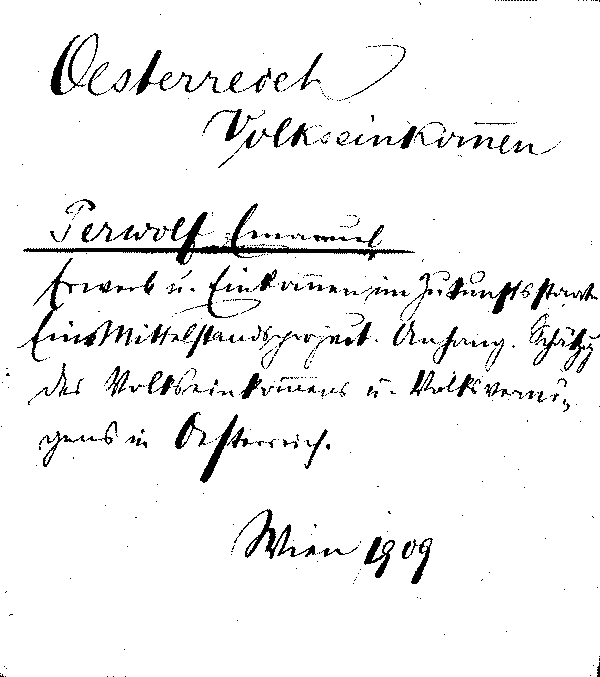 Oesterreich
Volkseinkom̅en
Perwolf Emanuel
Erwerb u. Einkom̅en im Zukunftsstaat.
Ein Mittelstandsproject. Anhang. Schätzg
des Volkseinkom̅ens u. Volksvermö-
gens in Oesterreich.
Wien 1909